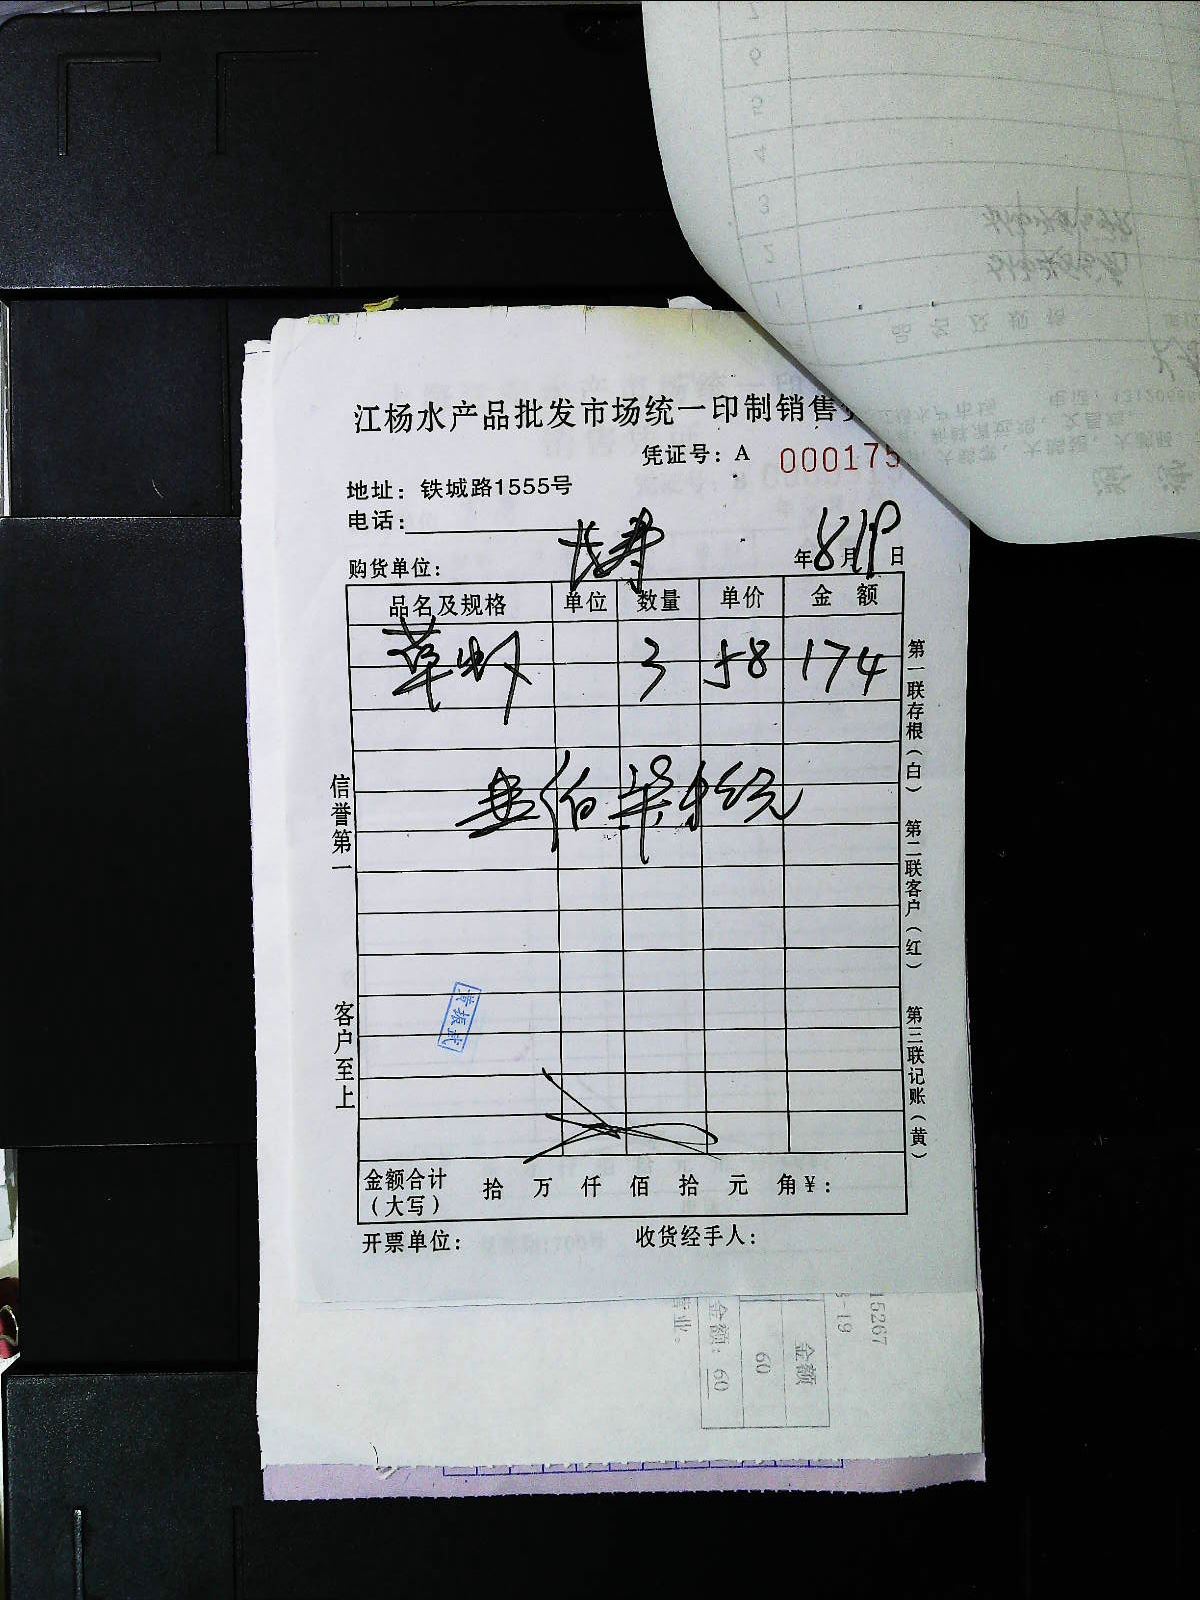 江杨水产品批发市场统一印制销售
凭证号：A 000175
地址：铁城路1555号
电话：
购货单位： 年8月19日
品名及规格 单位 数量 单价 金额
草虾 3 58 174
壹佰柒拾肆元
信誉第一
客户至上
第一联存根（白） 第二联客户（红） 第三联记账（黄）
金额合计（大写） 拾 万 仟 佰 拾 元 角 ¥：
开票单位： 收货经手人：
15267
-19
金额
60
金额：60
7
6
5
4
3
2
1
品名及规格